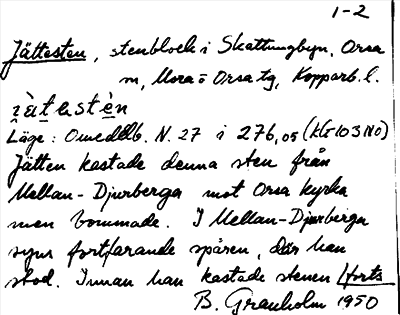 1-2
Jättesten, stenblock i Skattungbyn, Orsa
m, Mora o Orsa tg, Kopparb. l.
Läge: Omedelb. N. 27 i 276,05 (kr 103 NO)
Jätten kastade denna sten från
Mellan-Djurberga mot Orsa kyrka
men bommade. I Mellan-Djurberga
syns fortfarande spåren, där han
stod. Innan han kastade stenen /forts
B. Granholm 1950